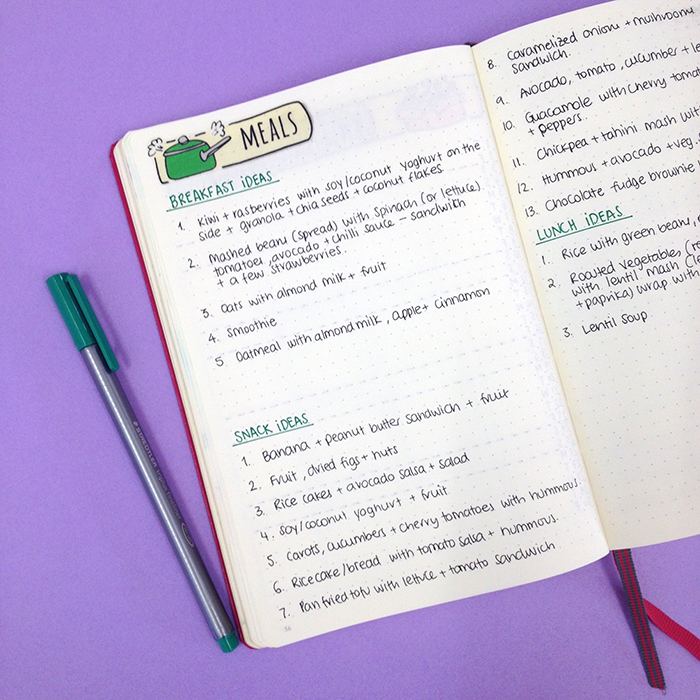 MEALS
BREAKFAST IDEAS
1. Kiwi + rasberries with soy/coconut yoghurt on the
side + granola + chia seeds + coconut flakes.
2. Mashed beans (spread) with spinach (or lettuce)
tomatoes, avocado + chilli sauce – sandwich
+ a few strawberries.
3. Oats with almond milk + fruit
4. Smoothie
5 Oatmeal with almond milk, apple + cinnamon
SNACK IDEAS
1. Banana + peanut butter sandwich + fruit
2. Fruit, dried figs + nuts
3. Rice cakes + avocado salsa + salad
4. Soy/coconut yoghurt + fruit
5. Carots, cucumbers + cherry tomatoes with hummous.
6. Ricecake/bread with tomato salsa + hummous.
7. Pan fried tofu with lettuce + tomato sandwich
36
STAEDTLER
8. Caramelized onion + mushroom
sandwich.
9. Avocado, tomato, cucumber + le
10. Guacamole with cherry tomat
+ peppers.
11. Chickpea + tahini mash wit
12. Hummous + avocado + veg.
13. Chocolate fudge brownie
LUNCH IDEAS
1. Rice with green beans,
2. Roasted vegetables, (
with lentil mash (le
+ paprika) wrap with
3. Lentil soup